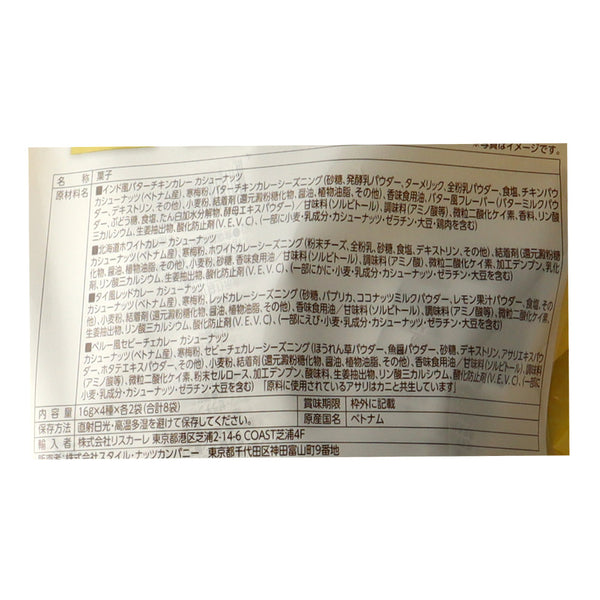 ※写真はイメージです。
名 称 菓子
原材料名 ■インド風バターチキンカレー カシューナッツ
カシューナッツ(ベトナム産)、寒梅粉、バターチキンカレーシーズニング(砂糖、発酵乳パウダー、ターメリック、全粉乳パウダー、食塩、チキンパウ
ダー、デキストリン、その他)、小麦粉、結着剤(還元澱粉糖化物、醤油、植物油脂、その他)、香味食用油、バター風フレーバー(バターミルクパウ
ダー、ぶどう糖、食塩、たん白加水分解物、酵母エキスパウダー)/甘味料(ソルビトール)、調味料(アミノ酸等)、微粒二酸化ケイ素、香料、リン酸
三カルシウム、生姜抽出物、酸化防止剤(V.E、V.C)、(一部に小麦・乳成分・カシューナッツ・ゼラチン・大豆・鶏肉を含む)
■北海道ホワイトカレー カシューナッツ
カシューナッツ(ベトナム産)、寒梅粉、ホワイトカレーシーズニング(粉末チーズ、全粉乳、砂糖、食塩、デキストリン、その他)、結着剤(還元澱粉糖
化物、醤油、植物油脂、その他)、小麦粉、砂糖、香味食用油/甘味料(ソルビトール)、調味料(アミノ酸等)、微粒二酸化ケイ素、加工デンプン、乳化
剤、リン酸三カルシウム、生姜抽出物、酸化防止剤(V.E、V.C)、(一部にかに・小麦・乳成分・カシューナッツ・ゼラチン・大豆を含む)
■タイ風レッドカレー カシューナッツ
カシューナッツ(ベトナム産)、寒梅粉、レッドカレーシーズニング(砂糖、パプリカ、ココナッツミルクパウダー、レモン果汁パウダー、食塩、その
他)、小麦粉、結着剤(還元澱粉糖化物、醤油、植物油脂、その他)、香味食用油/甘味料(ソルビトール)、調味料(アミノ酸等)、微粒二酸化ケイ素、
生姜抽出物、リン酸三カルシウム、酸化防止剤(V.E、V.C)、(一部にえび・小麦・乳成分・カシューナッツ・ゼラチン・大豆を含む)
■ペルー風セビーチェカレー カシューナッツ
カシューナッツ(ベトナム産)、寒梅粉、セビーチェカレーシーズニング(ほうれん草パウダー、魚醤パウダー、砂糖、デキストリン、アサリエキスパウ
ダー、ホタテエキスパウダー、その他)、小麦粉、結着剤(還元澱粉糖化物、醤油、植物油脂、その他)、香味食用油/甘味料(ソルビトール)、調味料
(アミノ酸等)、微粒二酸化ケイ素、粉末セルロース、加工デンプン、酸味料、生姜抽出物、リン酸三カルシウム、酸化防止剤(V.E、V.C)、(一部に小麦・
カシューナッツ・ゼラチン・大豆を含む) 「原料に使用されているアサリはカニと共生しています」
内 容 量 16g×4種×各2袋(合計8袋) 賞味期限 枠外に記載
保存方法 直射日光・高温多湿を避けて保存してください。 原産国名 ベトナム
輸 入 者 株式会社リスカーレ 東京都港区芝浦2-14-6 COAST芝浦4F
販売者:株式会社スタイル・ナッツカンパニー 東京都千代田区神田富山町9番地